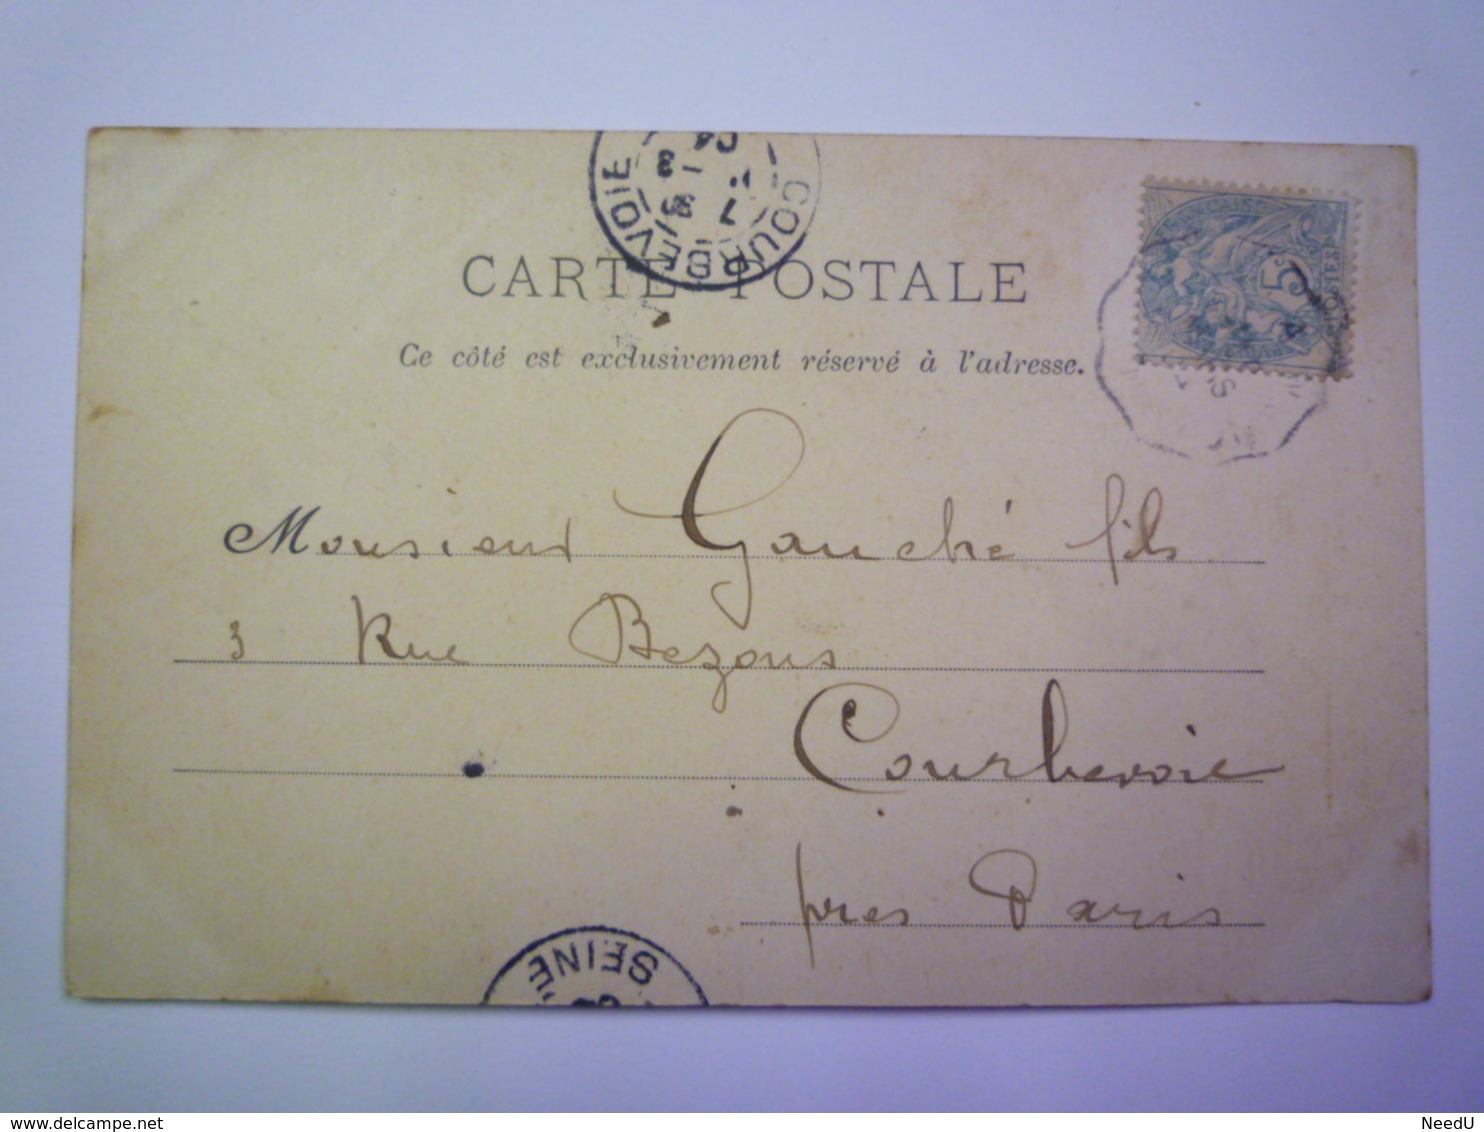 COURBEVOIE
7
3
04
CARTE POSTALE
Ce côté est exclusivement réservé à l'adresse.
5c
POSTES
Monsieur Gauché fils
3 Rue Bezons
Courbevoie
près Paris
SEINE
© delcampe.net
NeedU